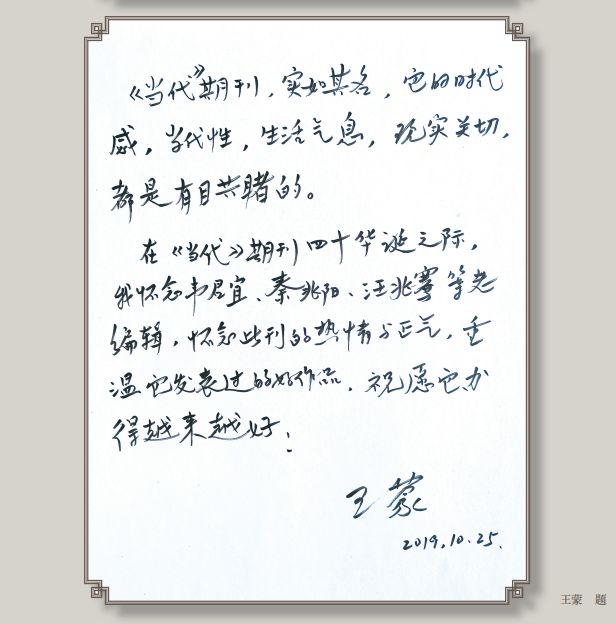 《当代》期刊，实如其名，它的时代
感，当代性，生活气息，现实关切，
都是有目共睹的。
在《当代》期刊四十华诞之际，
我怀念韦君宜、秦兆阳、汪兆骞等老
编辑，怀念此刊的热情与正气，重
温它发表过的好作品，祝愿它办
得越来越好！
王蒙
2019.10.25.
王蒙 题